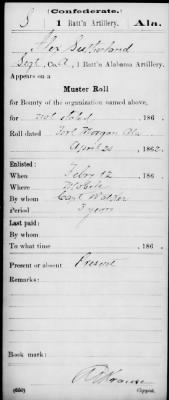 (Confederate.)
S 1 Batt'n Artillery. Ala.
Alex Sutherland
Sergt, Co. A, 1 Batt'n Alabama Artillery.
Appears on a
Muster Roll
for Bounty of the organization named above,
for not stated, 186 .
Roll dated Fort Morgan Ala
April 20, 1862.
Enlisted:
When Feby 12, 186 .
Where Mobile
By whom Capt Walker
Period 3 years
Last paid:
By whom
To what time , 186 .
Present or absent Present
Remarks:
Book mark:
(656) Copyist.